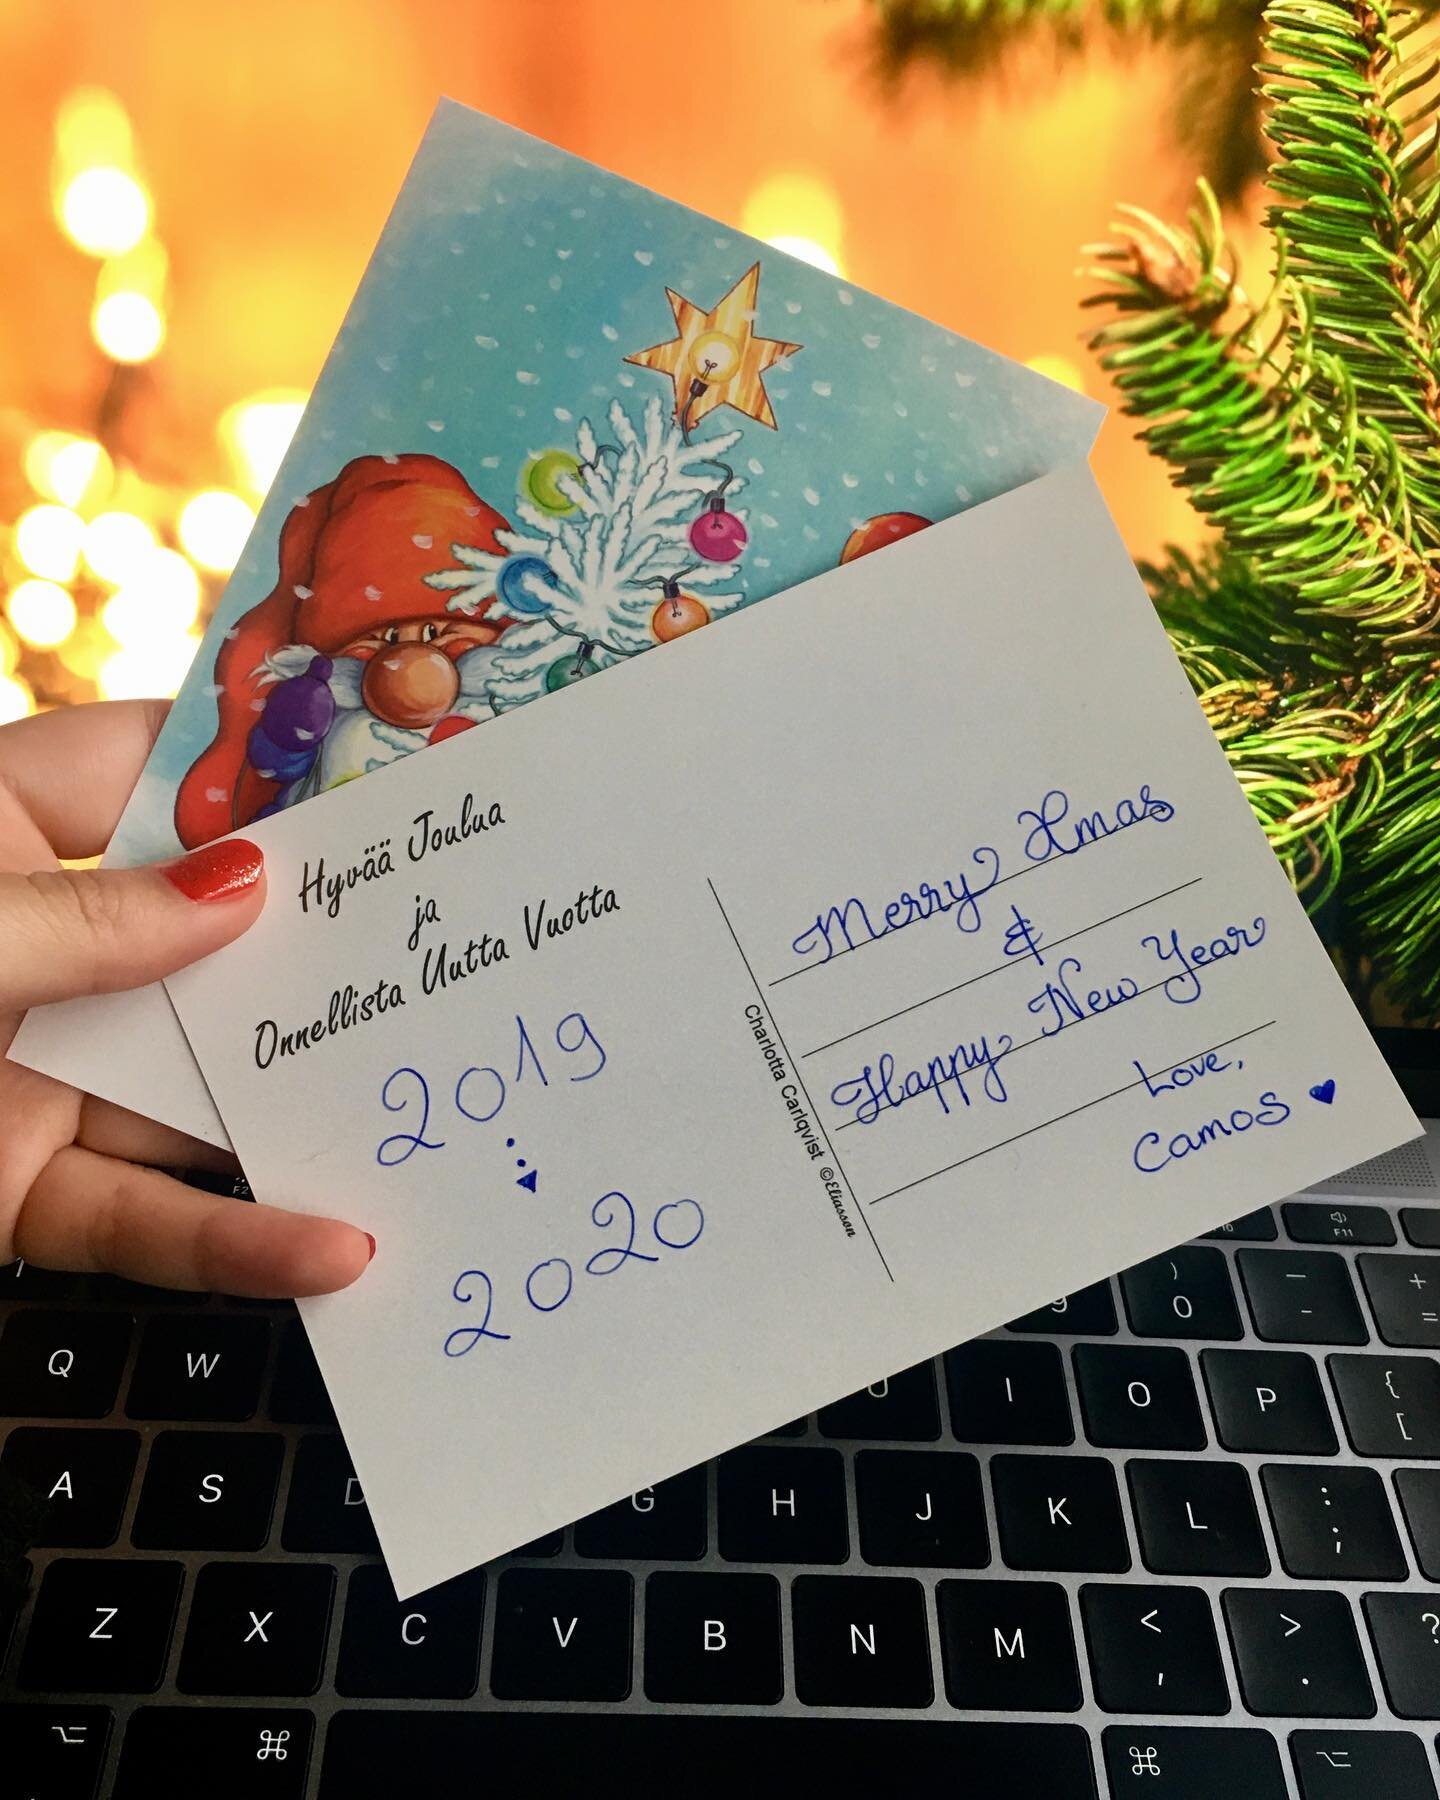 Hyvää Joulua
ja
Onnellista Uutta Vuotta
2019
2020
Charlotta Carlqvist ©Eliasson
Merry Xmas
&
Happy New Year
Love,
Camos
F2
F10
F11
9
)
0
_
-
+
=
Q
W
U
I
O
P
{
[
A
S
D
G
H
J
K
L
:
;
Z
X
C
V
B
N
M
<
,
>
.
?
⌥
⌘
⌘
⌥